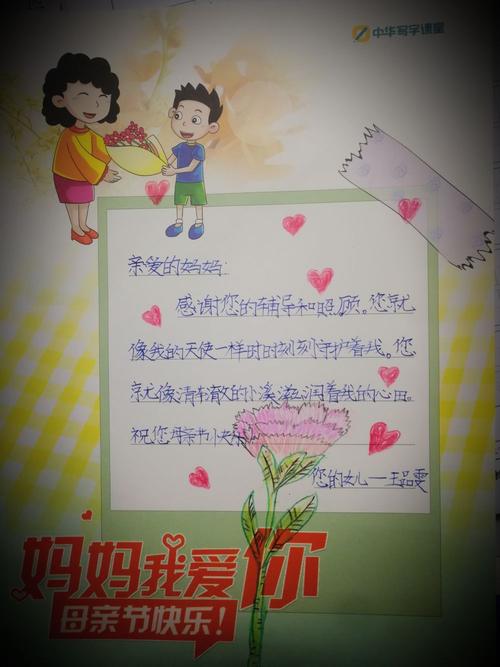 中华写字课堂
亲爱的妈妈:
感谢您的辅导和照顾。您就
像我的天使一样时时刻刻守护着我。您
就像清澈的小溪滋润着我的心田。
祝您母亲节快乐
您的女儿—王品雯
妈妈我爱你
母亲节快乐!